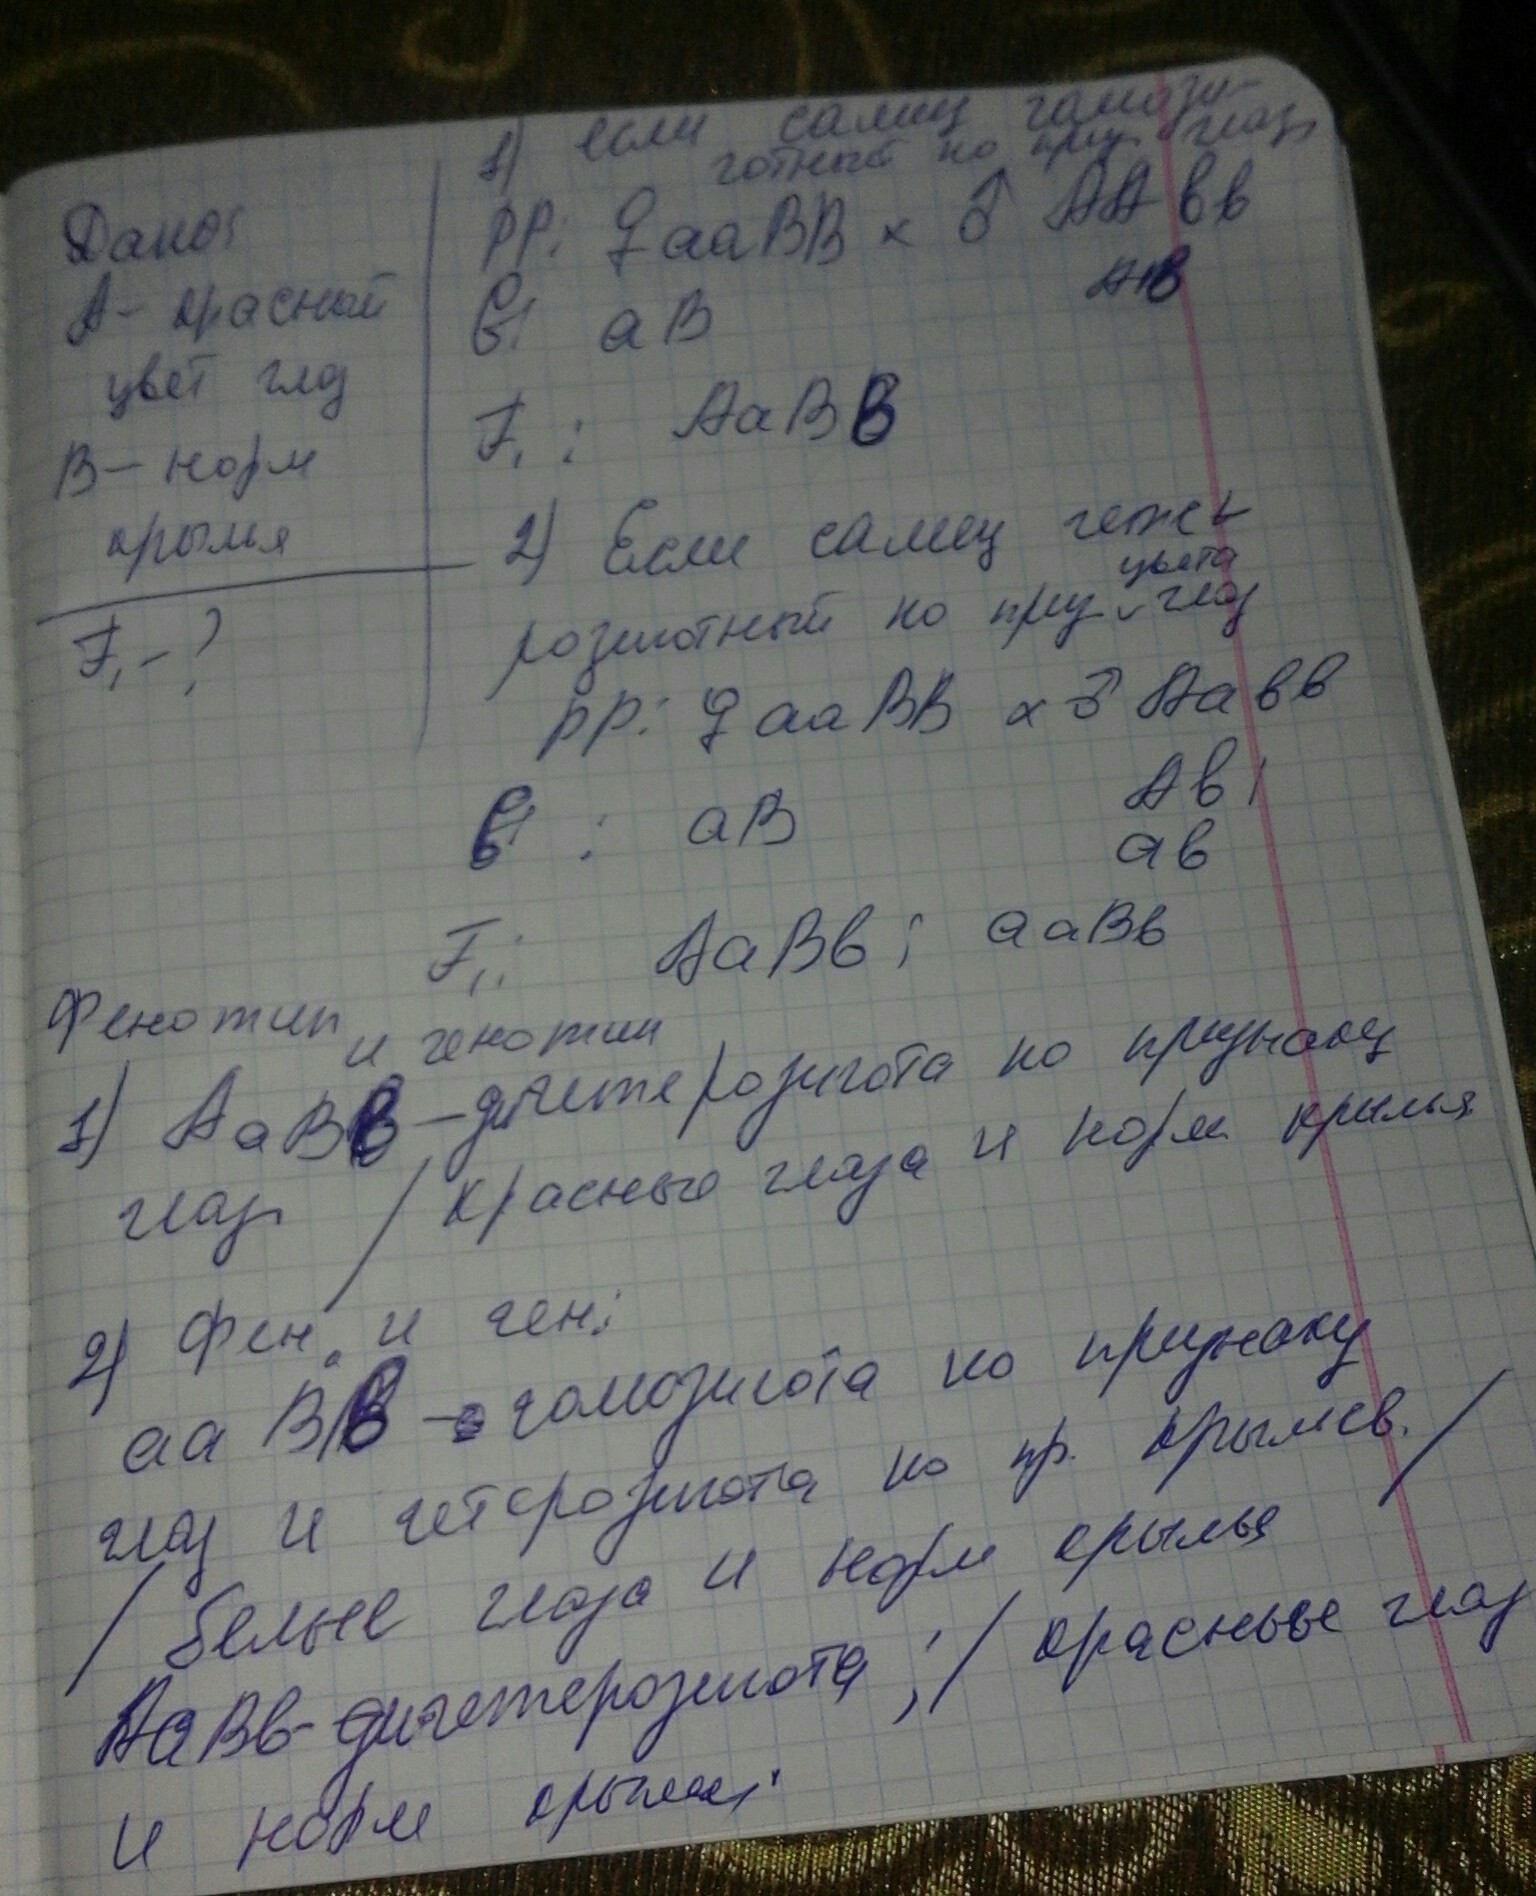 Дано:
А - красный
цвет глаз
В - норм
крылья
F₁ - ?
1) если самец гомози-
готный по приз. глаз
РР: ♀ ааВВ × ♂ ААвв
G: аВ Ав
F₁: АаВв
2) Если самец гете-
розиготный по приз. цвета глаз
РР: ♀ ааВВ × ♂ Аавв
G: аВ Ав;
ав
F₁: АаВв; ааВв
Фенотип и генотип
1) АаВв - дигетерозигота по признаку
глаз / красные глаза и норм крылья
2) Фен. и ген:
ааВв - гомозигота по признаку
глаз и гетерозигота по пр. крыльев. /
/ белые глаза и норм крылья
АаВв - дигетерозигота; / красные глаз
и норм крылья.